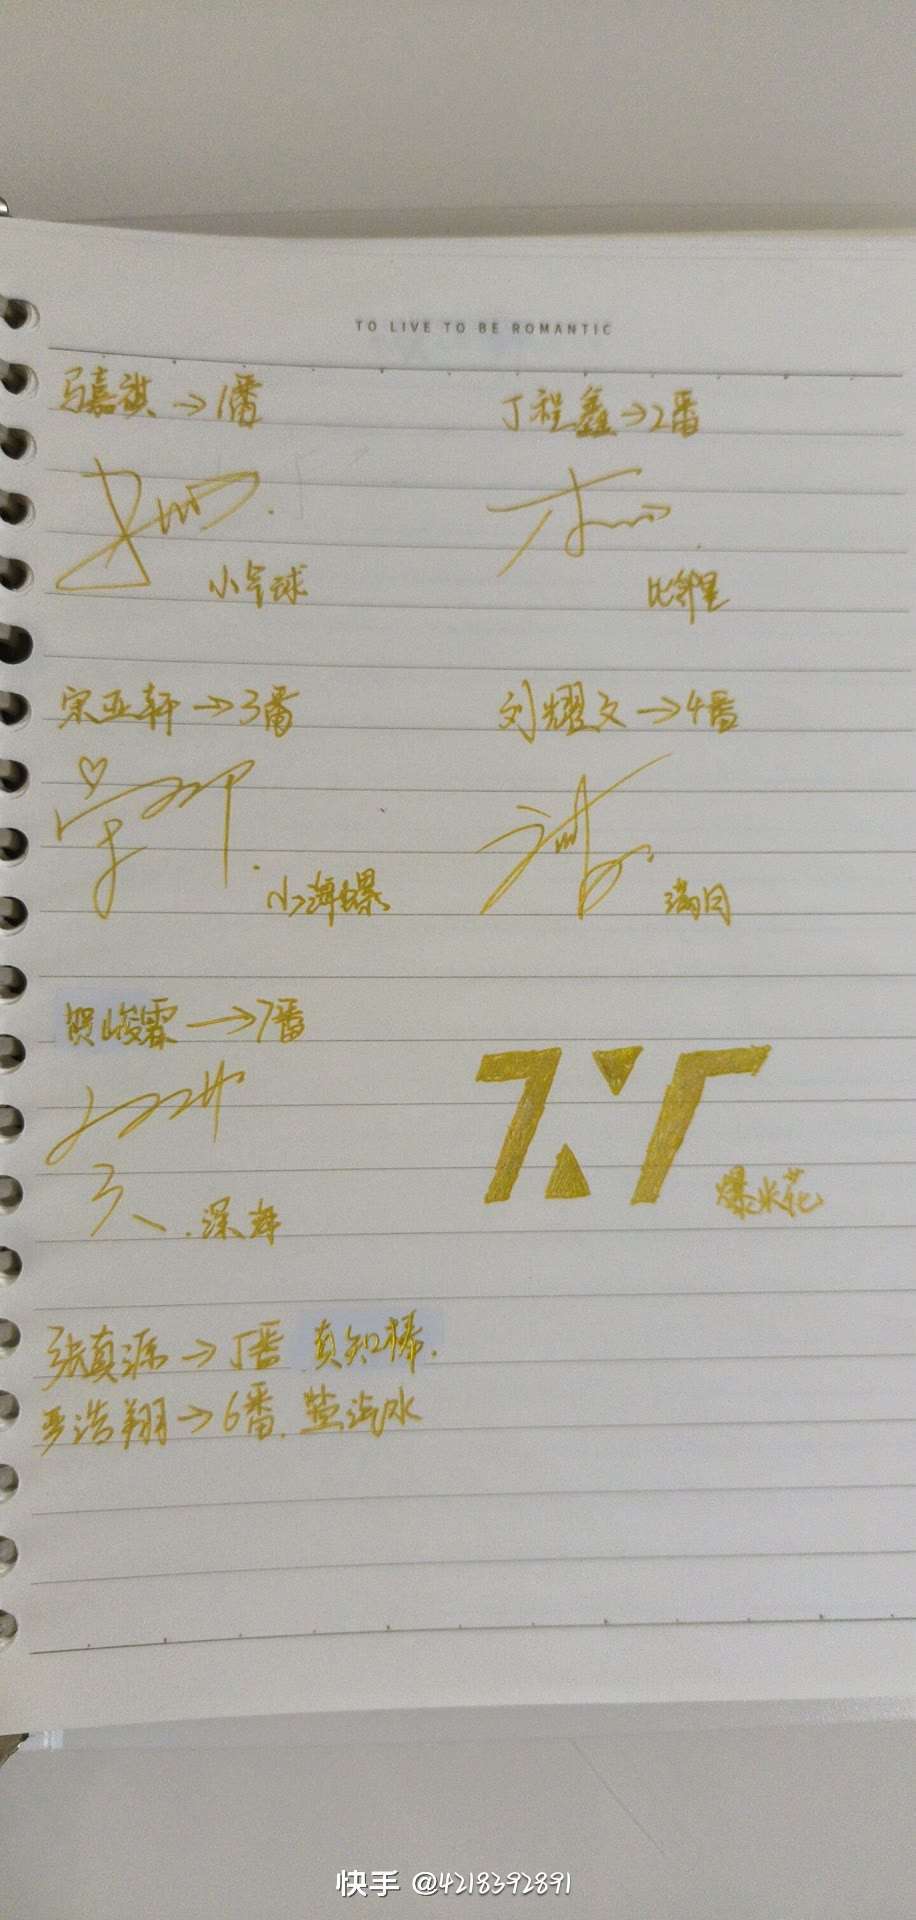 TO LIVE TO BE ROMANTIC
马嘉祺→1番
丁程鑫→2番
小气球
比邻星
宋亚轩→3番
刘耀文→4番
小海螺
满月
贺峻霖→7番
深舞
爆米花
张真源→5番 真知棒.
严浩翔→6番. 盐汽水
快手 @4218392891